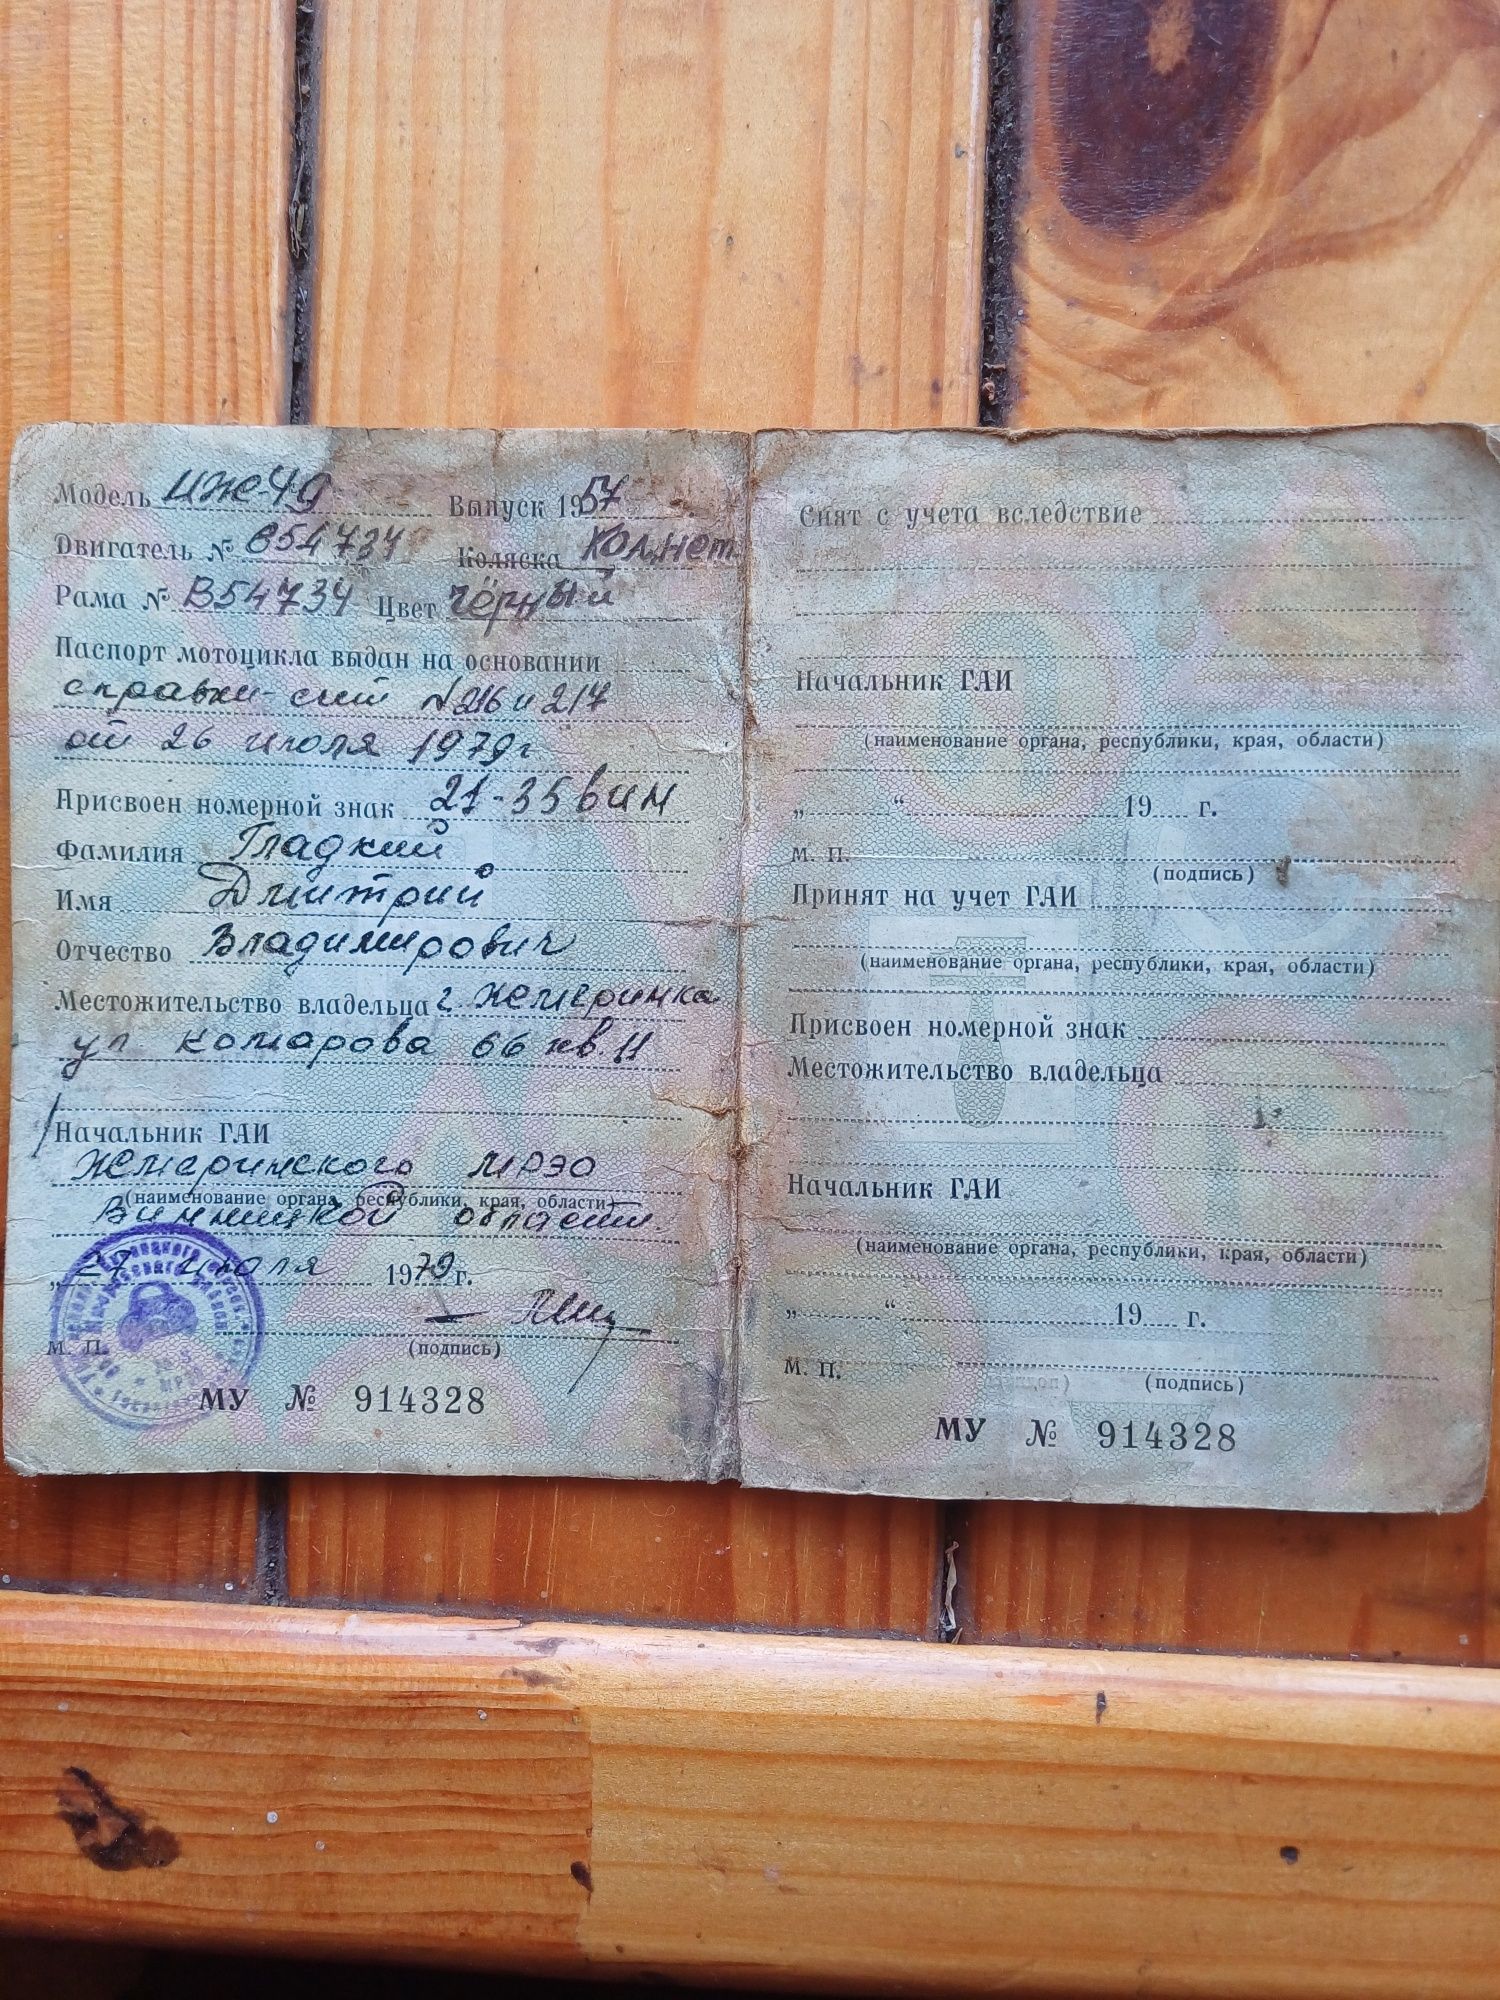 Модель ИЖ-49 Выпуск 1957
Двигатель № В54734 Коляска Кол. нет
Рама № В54734 Цвет чёрный
Паспорт мотоцикла выдан на основании
справки-счет №216 и 217
от 26 июля 1979 г
Присвоен номерной знак 21-35 вин
Фамилия Гладкий
Имя Дмитрий
Отчество Владимирович
Местожительство владельца г. Жмеринка
ул. Комарова 66 кв. 11
Начальник ГАИ
Жмеринского МРЭО
(наименование органа, республики, края, области)
Винницкой области.
„27 июля 1979 г.
М. П.
(подпись)
МУ № 914328
Снят с учета вследствие
Начальник ГАИ
(наименование органа, республики, края, области)
„ “ 19 г.
М. П.
(подпись)
Принят на учет ГАИ
(наименование органа, республики, края, области)
Присвоен номерной знак
Местожительство владельца
Начальник ГАИ
(наименование органа, республики, края, области)
„ “ 19 г.
М. П.
(подпись)
МУ № 914328